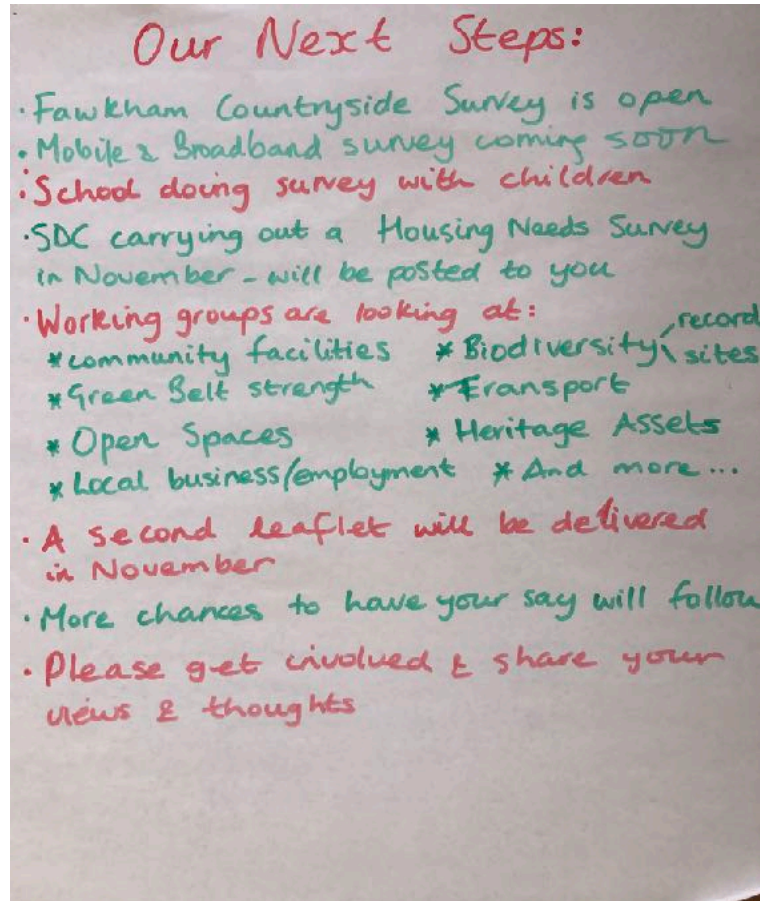 Our Next Steps:
· Fawkham Countryside Survey is open
· Mobile & Broadband survey coming soon
· School doing survey with children
· SDC carrying out a Housing Needs Survey
in November - will be posted to you
· Working groups are looking at:
* community facilities * Biodiversity record sites
* Green Belt strength * Transport
* Open Spaces * Heritage Assets
* Local business/employment * And more...
· A second leaflet will be delivered
in November
· More chances to have your say will follow
· Please get involved & share your
views & thoughts